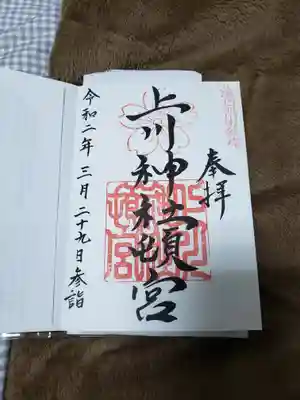 奉拝
上川神社頓宮
令和二年三月二十九日参詣